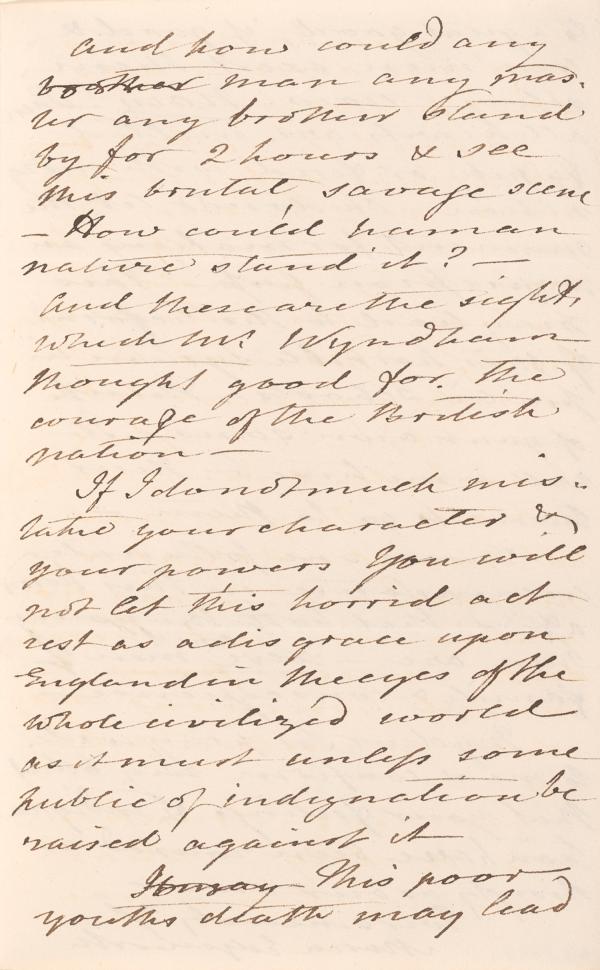 and how could any
brother man any mas-
ter any brother stand
by for 2 hours & see
this brutal, savage scene
– How could human
nature stand it? –
And these are the sights,
which Mr. Wyndham
thought good for. the
courage of the British
nation –
If I do not much mis-
take your character &
your powers You will
not let this horrid act
rest as a disgrace upon
England in the eyes of the
whole civilized world
as it must unless some
public of indignation be
raised against it
It may This poor
youths death may lead